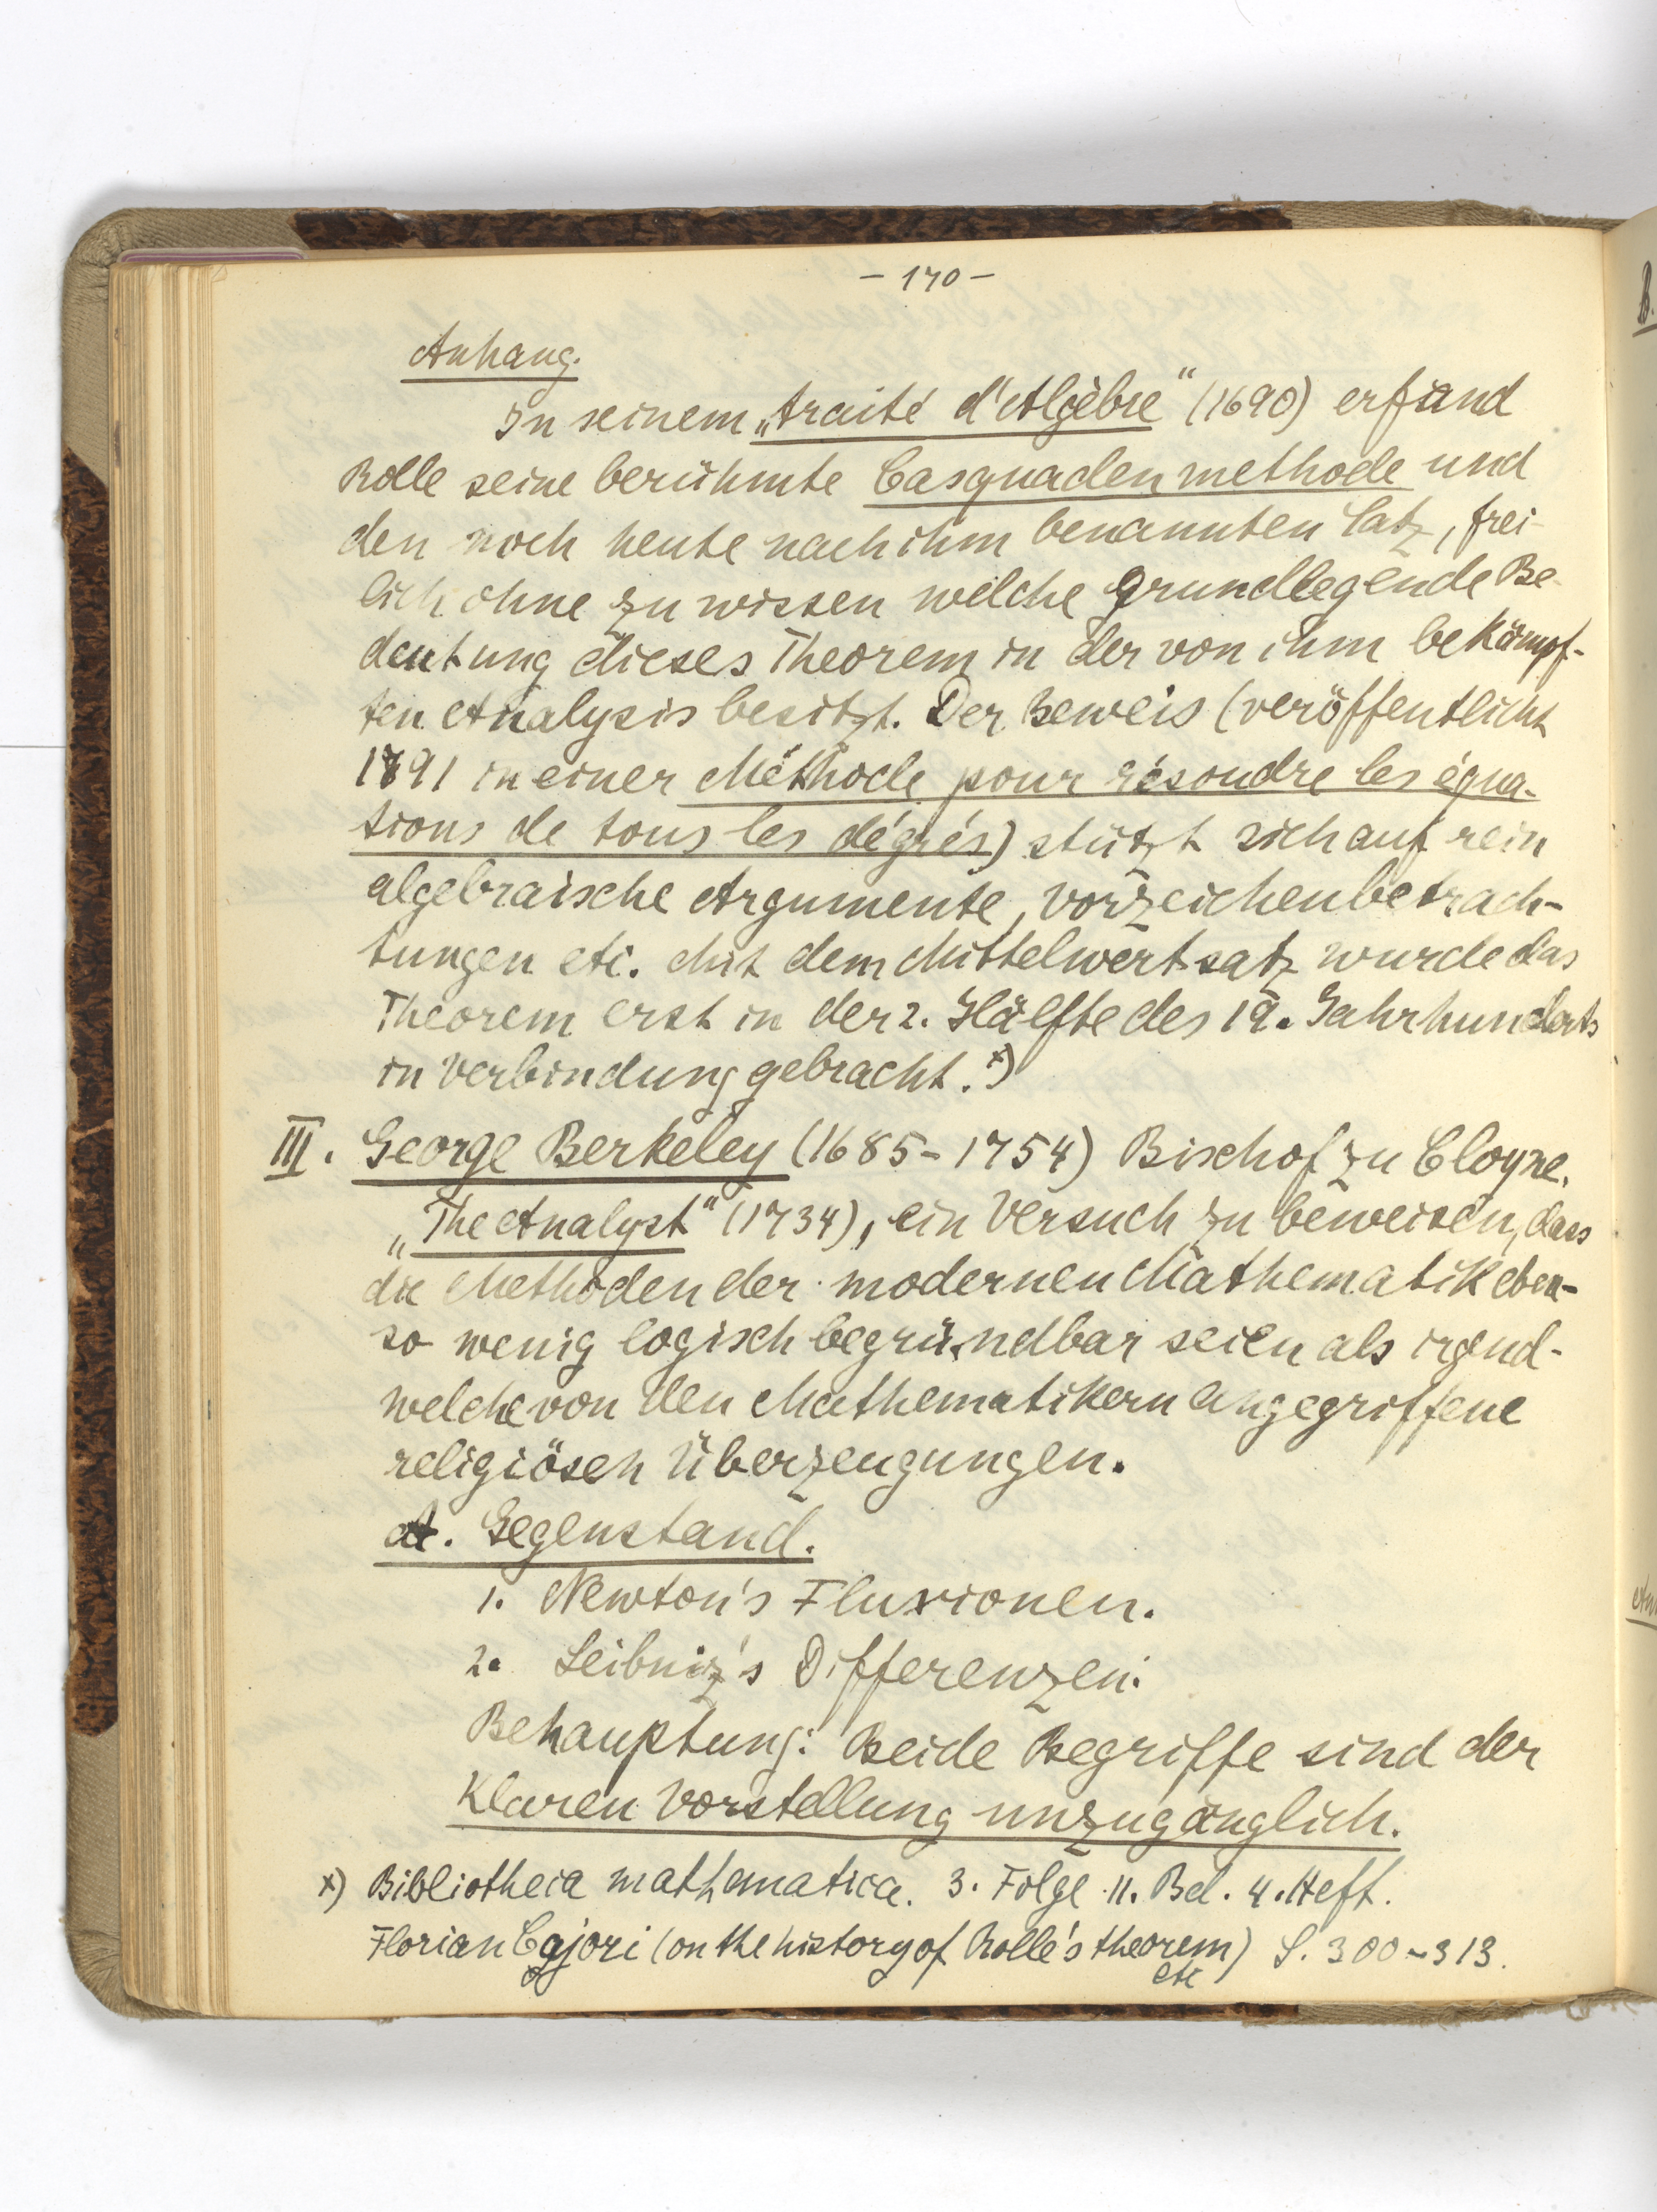 - 170 -
Anhang.
In seinem „traité d'Algèbre“ (1690) erfand
Rolle seine berühmte Casquadenmethode und
den noch heute nach ihm benannten Satz, frei-
lich ohne zu wissen welche grundlegende Be-
deutung dieses Theorem in der von ihm bekämpf-
ten Analysis besitzt. Der Beweis (veröffentlicht
1691 in einer Méthode pour résoudre les équa-
tions de tous les dégrés) stützt sich auf rein
algebraische Argumente, Vorzeichenbetrach-
tungen etc. Mit dem Mittelwertsatz wurde das
Theorem erst in der 2. Hälfte des 19. Jahrhunderts
in Verbindung gebracht. x)
III. George Berkeley (1685-1754) Bischof zu Cloyne.
„The Analyst“ (1734), ein Versuch zu beweisen, dass
die Methoden der modernen Mathematik eben-
so wenig logisch begründbar seien als irgend-
welche von den Mathematikern angegriffene
religiösen Überzeugungen.
A. Gegenstand.
1. Newton's Fluxionen.
2. Leibniz's Differenzen.
Behauptung: Beide Begriffe sind der
klaren Vorstellung unzugänglich.
x) Bibliotheca mathematica. 3. Folge 11. Bd. 4. Heft.
Florian Cajori (on the history of Rolle's theorem) S. 300-313.
etc
B.